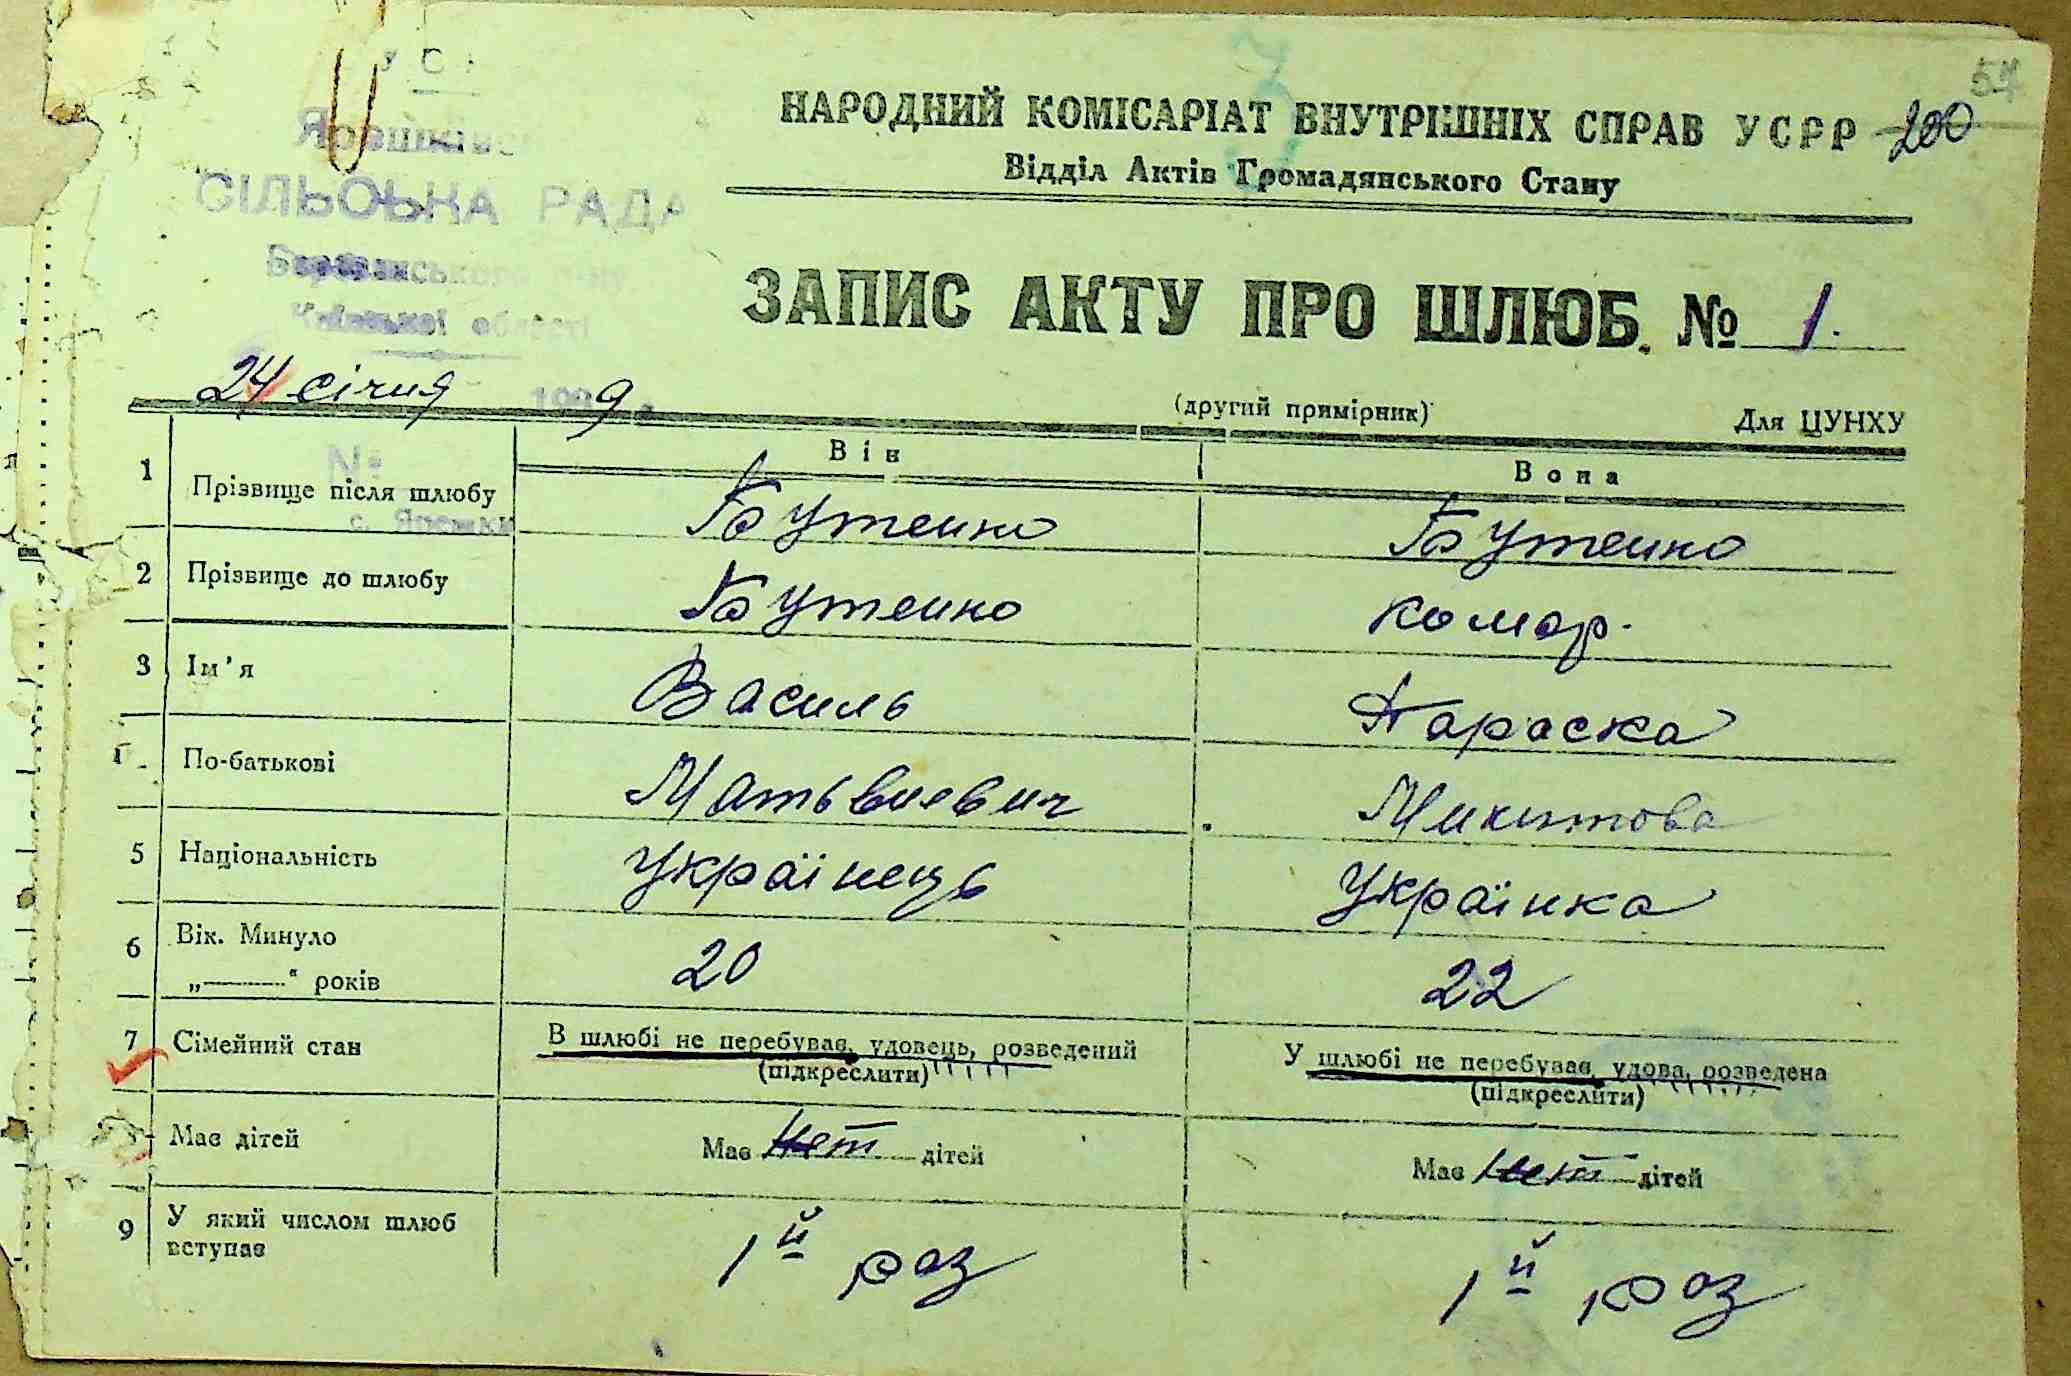 57
НАРОДНИЙ КОМІСАРІАТ ВНУТРІШНІХ СПРАВ УСРР 200
Відділ Актів Громадянського Стану
СІЛЬСЬКА РАДА
Березанського р-ну
Київської області
ЗАПИС АКТУ ПРО ШЛЮБ. № 1.
24 січня 1939
(другий примірник) Для ЦУНХУ
Він Вона
№
1 Прізвище після шлюбу Бутенко Бутенко
с. Ярешки
2 Прізвище до шлюбу Бутенко Комар.
3 Ім'я Василь Параска
По-батькові Матьвиевич Микитова
5 Національність Українець Українка
6 Вік. Минуло
„———“ років 20 22
7 Сімейний стан В шлюбі не перебуває, удовець, розведений У шлюбі не перебуває, удова, розведена
(підкреслити) (підкреслити)
Має дітей Має нет дітей Має нет дітей
9 У який числом шлюб
вступає 1й раз 1й раз